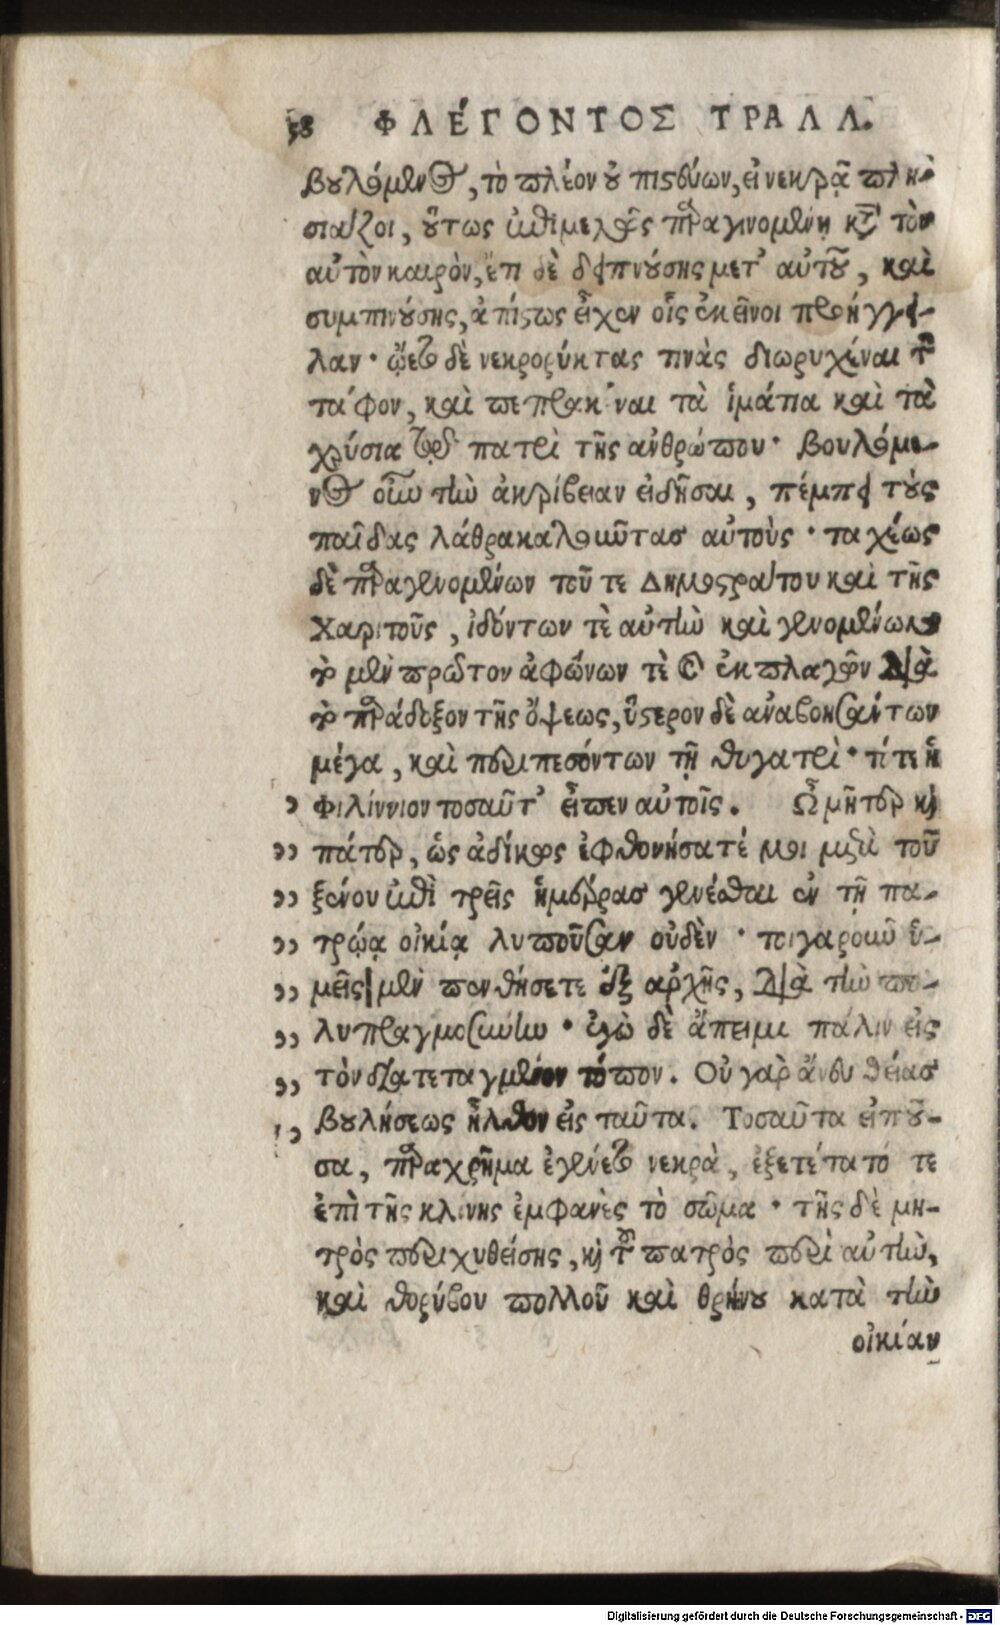 58 ΦΛΈΓΟΝΤΟΣ ΤΡΑΛΛ.
βουλόμενος, τὸ πλέον οὐ πιστεύων, εἰ νεκρᾷ πλη-
σιάζοι, οὕτως ἐπιμελῶς παραγινομένῃ κατὰ τὸν
αὐτὸν καιρὸν, ἔτι δὲ δειπνούσης μετ' αὐτοῦ, καὶ
συμπινούσης, ἀπίστως εἶχεν οἷς ἐκεῖνοι προήγγει-
λαν· ᾤετο δὲ νεκρορύκτας τινὰς διωρυχέναι τὸν
τάφον, καὶ πεπρακέναι τὰ ἱμάτια καὶ τὰ
χρύσια τῷ πατρὶ τῆς ἀνθρώπου· βουλόμε-
νος οὖν τὴν ἀκρίβειαν εἰδῆσαι, πέμπει τοὺς
παῖδας λάθρα καλοῦντας αὐτοὺς· ταχέως
δὲ παραγενομένων τοῦ τε Δημοστράτου καὶ τῆς
Χαριτοῦς, ἰδόντων τὲ αὐτὴν καὶ γενομένων
τὸ μὲν πρῶτον ἀφώνων τὲ καὶ ἐκπλαγῶν διὰ
τὸ παράδοξον τῆς ὄψεως, ὕστερον δὲ ἀναβοησάντων
μέγα, καὶ περιπεσόντων τῇ θυγατρὶ· τότε ἡ
Φιλίννιον τοσαῦτ' εἶπεν αὐτοῖς. Ὦ μῆτερ καὶ
πάτερ, ὡς ἀδίκως ἐφθονήσατέ μοι μετὰ τοῦ
ξένου ἐπὶ τρεῖς ἡμέρας γενέσθαι ἐν τῇ πα-
τρῴᾳ οἰκίᾳ λυποῦσαν οὐδὲν· τοιγαροῦν ὑ-
μεῖς μὲν πονθήσετε ἐξ ἀρχῆς, διὰ τὴν πο-
λυπραγμοσύνην· ἐγὼ δὲ ἄπειμι πάλιν εἰς
τὸν διατεταγμένον τόπον. Οὐ γὰρ ἄνευ θείας
βουλήσεως ἦλθον εἰς ταῦτα. Τοσαῦτα εἰποῦ-
σα, παραχρῆμα ἐγένετο νεκρὰ, ἐξετέτατό τε
ἐπὶ τῆς κλίνης ἐμφανὲς τὸ σῶμα· τῆς δὲ μη-
τρὸς περιχυθείσης, καὶ τοῦ πατρὸς περὶ αὐτὴν,
καὶ θορύβου πολλοῦ καὶ θρήνου κατὰ τὴν
οἰκίαν
Digitalisierung gefördert durch die Deutsche Forschungsgemeinschaft - DFG